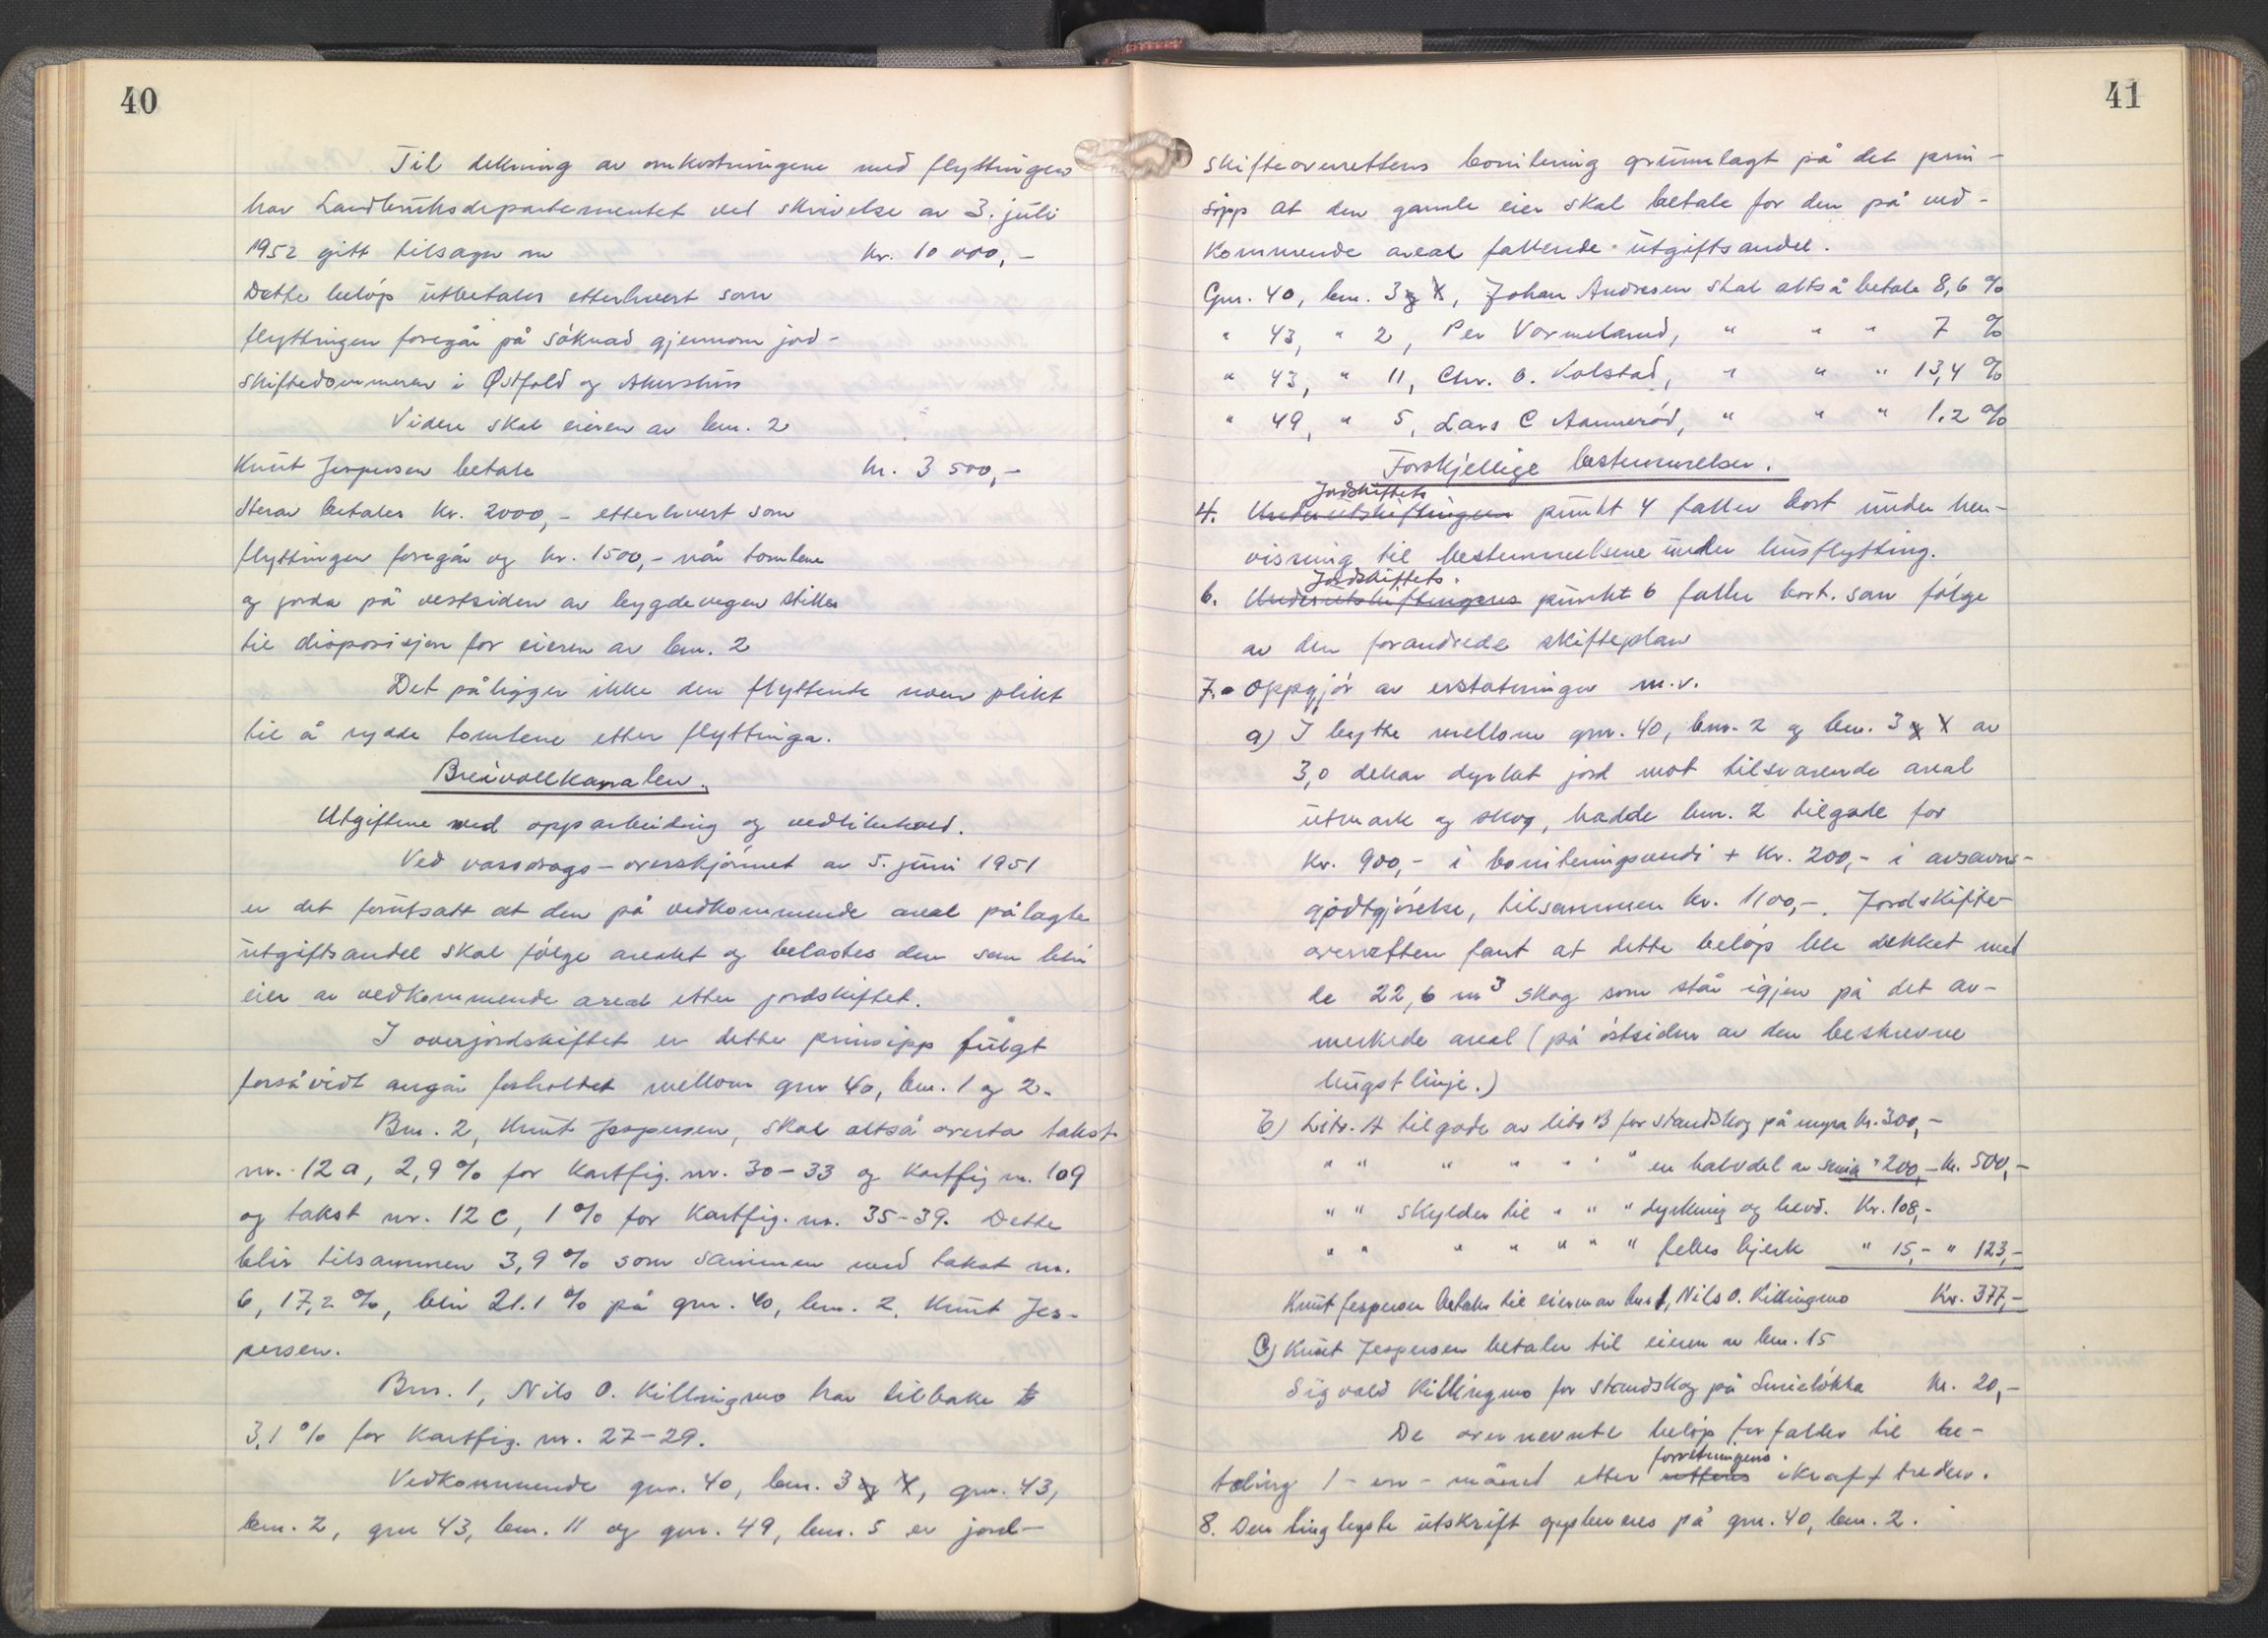 40
Til dekning av omkostningene med flyttingen
har Landbruksdepartementet ved skrivelse av 3. juli
1952 gitt tilsagn om kr. 10 000,-
Dette beløp utbetales etterhvert som
flyttingen foregår på søknad gjennom jord-
skiftedommeren i Østfold og Akershus
Videre skal eieren av bnr. 2
Knut Jespersen betale kr. 3 500,-
Herav betales kr. 2000,- etterhvert som
flyttingen foregår og kr. 1500,- når tomtene
og jorda på vestsiden av bygdevegen stilles
til disposisjon for eieren av bnr. 2
Det påligger ikke den flyttende noen plikt
til å rydde tomtene etter flyttinga.
Breivollkanalen.
Utgiftene ved opparbeiding og vedlikehold.
Ved vassdrags-overskjønnet av 5. juni 1951
er det forutsatt at den på vedkommende areal pålagte
utgiftsandel skal følge arealet og belastes den som blir
eier av vedkommende areal etter jordskiftet.
I overjordskiftet er dette prinsipp fulgt
forsåvidt angår forholdet mellom gnr 40, bnr. 1 og 2.
Bnr. 2, Knut Jespersen, skal altså overta takst
nr. 12 a, 2,9 % for Kartfig. nr. 30-33 og Kartfig nr. 109
og takst nr. 12 c, 1 % for Kartfig. nr. 35-39. Dette
blir tilsammen 3,9 % som sammen med takst nr.
6, 17,2 %, blir 21.1 % på gnr. 40, bnr. 2, Knut Jes-
persen.
Bnr. 1, Nils O. Killingmo har tilbake
3,1 % for Kartfig. nr. 27-29.
Vedkommende gnr. 40, bnr. 3 og 4, gnr. 43,
bnr. 2, gnr 43, bnr. 11 og gnr. 49, bnr. 5 er jord-
41
skifteoverrettens bonitering grunnlagt på det prin-
sipp at den gamle eier skal betale for den på ved-
kommende areal fallende utgiftsandel.
Gnr. 40, bnr. 3 og 4, Johan Andresen skal altså betale 8,6 %
" 43, " 2, Per Varmeland, " " " 7 %
" 43, " 11, Chr. O. Kolstad, " " " 13,4 %
" 49, " 5, Lars C Aamerød, " " " 1.2 %
Forskjellige bestemmelser.
Jordskiftets
4. Underutskiftingen punkt 4 faller bort under hen-
visning til bestemmelsene under husflytting.
Jordskiftets
6. Underutskiftingens punkt 6 faller bort. som følge
av den forandrede skifteplan
7. Oppgjør av erstatninger m.v.
a) I bytte mellom gnr. 40, bnr. 2 og bnr. 3 og 4 av
3,0 dekar dyrket jord mot tilsvarende areal
utmark og skog, hadde bnr. 2 tilgode for
Kr. 900,- i boniteringsverdi + Kr. 200,- i avsavns-
godtgjørelse, tilsammen kr. 1100,-. Jordskifte-
overretten fant at dette beløp ble dekket med
de 22,6 m3 skog som står igjen på det av-
merkede areal (på østsiden av den beskrevne
hugstlinje.)
b) Litr. A tilgode av litr B for standskog på myra kr. 300,-
" " " " " " " en halvdel av smia " 200,- kr. 500,-
" " skylder til " " " dyrkning og hevd. Kr. 108,-
" " " " " " " felles bjerk " 15,- " 123,-
Knut Jespersen betaler til eieren av bnr 1, Nils O. Killingmo Kr. 377,-
c) Knut Jespersen betaler til eieren av bnr. 15
Sigvald Killingmo for standskog på Smieløkka Kr. 20,-
De overnevnte beløp forfaller til be-
forretningens
taling 1 - en - måned etter rettens ikrafttreden.
8. Den tinglyste utskrift oppbevares på gnr. 40, bnr. 2.